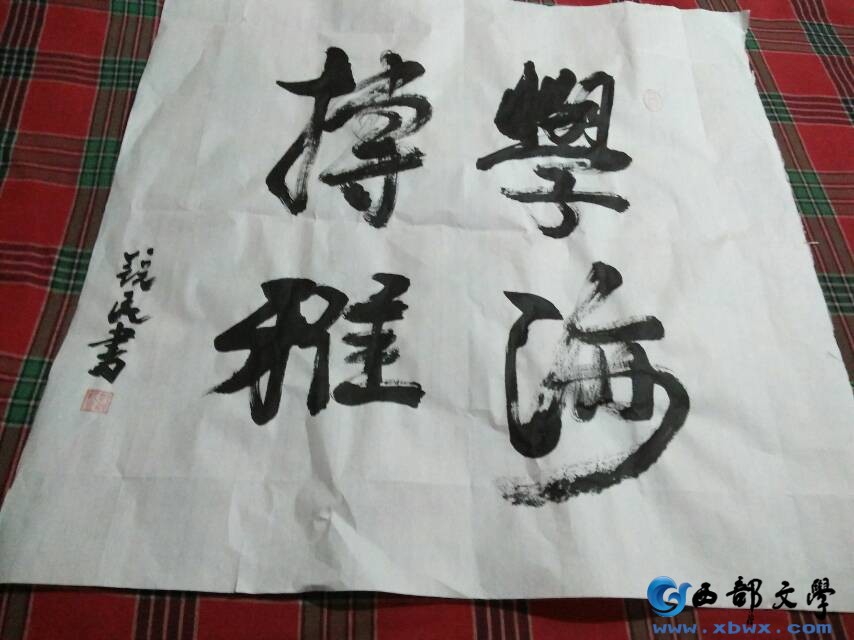 學海
搏雅
民書
西部文學
www.xbwx.com